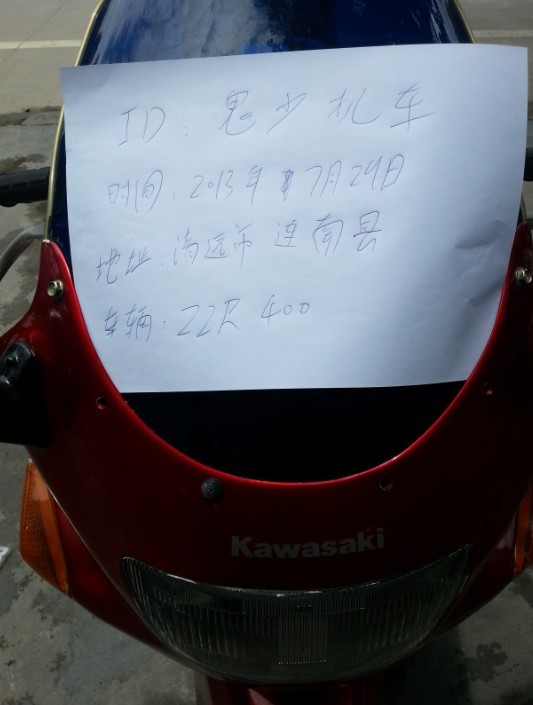 ID：鬼少机车
时间：2013年7月29日
地址：清远市 连南县
车辆：ZZR 400
Kawasaki